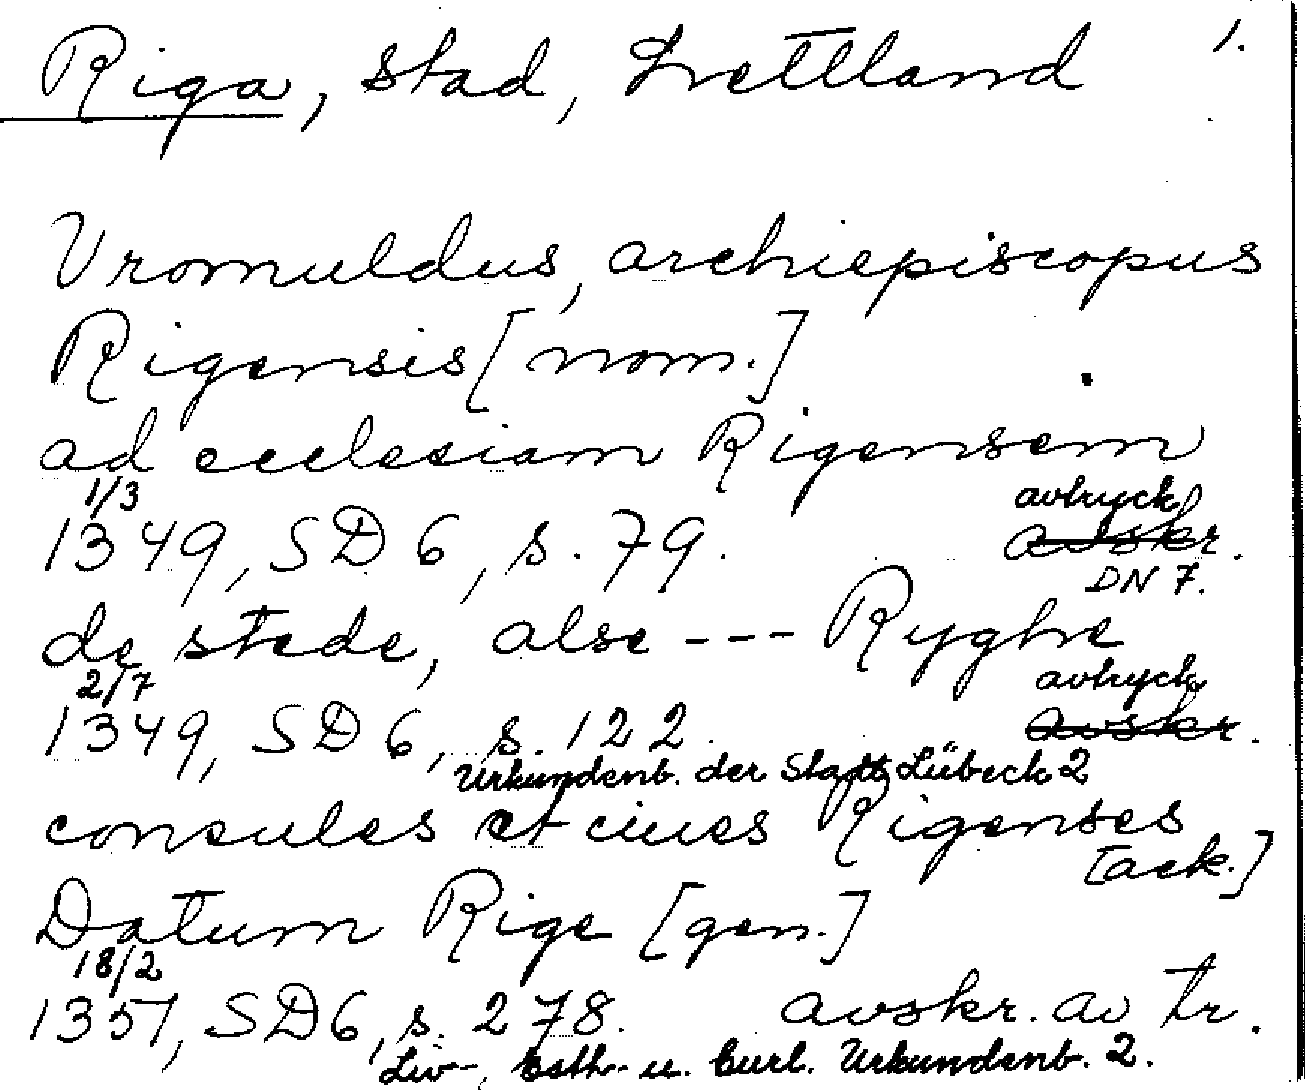 Riga, stad, Lettland 1.
Vromuldus, archiepiscopus
Rigensis [nom.]
ad ecclesiam Rigensem
1/3 avtryck
1349, SD 6, s. 79. avskr.
DN 7.
de stede, alse --- Ryghe
2/7 avtryck
1349, SD 6, s. 122. avskr.
Urkundenb. der Stadt Lübeck 2
consules et ciues Rigenses
[ack.]
Datum Rige [gen.]
18/2
1351, SD 6, s. 278. avskr. av tr.
Liv-, Esth- u. Curl. Urkundenb. 2.